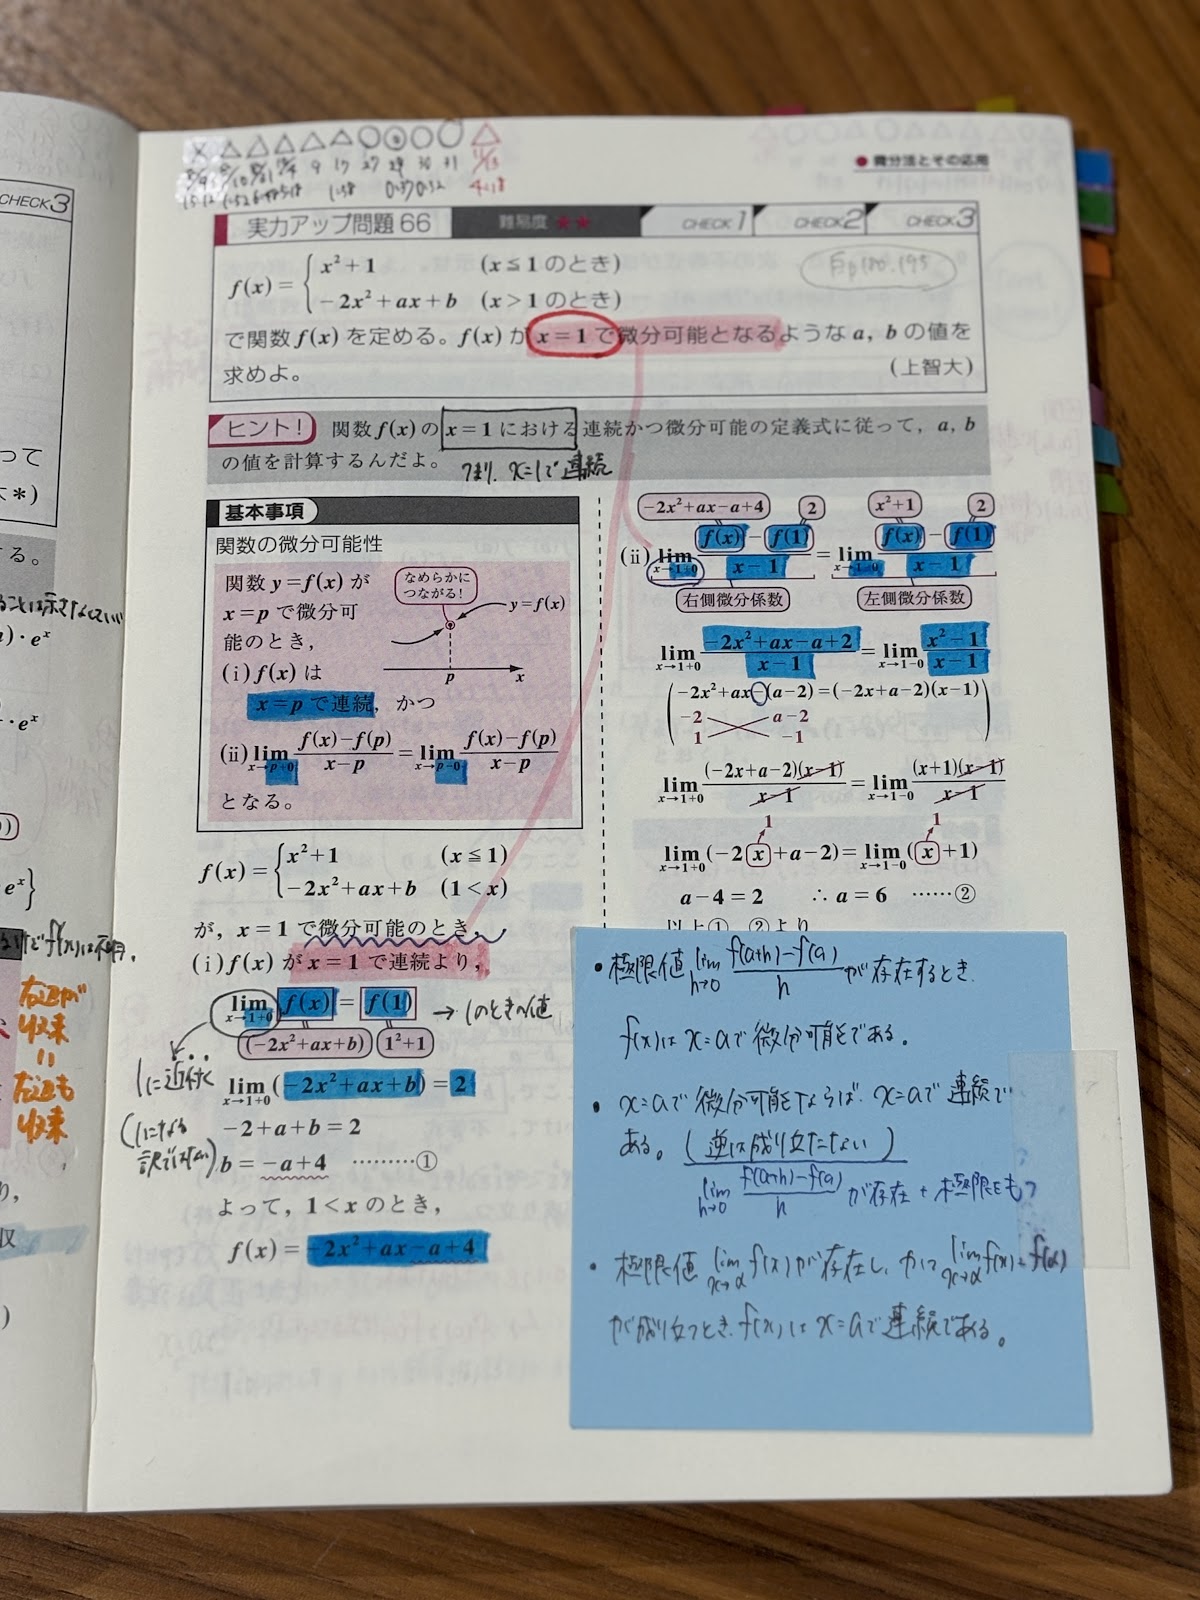 微分法とその応用
実力アップ問題 66 難易度 ★★ CHECK 1 CHECK 2 CHECK 3
f(x) = { x²+1 (x≦1のとき)
−2x²+ax+b (x>1のとき)
で関数 f(x) を定める。f(x) が x=1 で微分可能となるような a, b の値を
求めよ。 (上智大)
ヒント! 関数 f(x) の x=1 における連続かつ微分可能の定義式に従って, a, b
の値を計算するんだよ。 つまり, x=1で連続
基本事項
関数の微分可能性
関数 y=f(x) が
x=p で微分可
能のとき,
なめらかに
つながる!
y=f(x)
p x
(i) f(x) は
x=p で連続, かつ
(ii) lim x→p+0 f(x)−f(p)/x−p = lim x→p−0 f(x)−f(p)/x−p
となる。
f(x) = { x²+1 (x≦1)
−2x²+ax+b (1<x)
が, x=1 で微分可能のとき,
(i) f(x) が x=1 で連続より,
lim x→1+0 f(x) = f(1) → 1のときの値
(−2x²+ax+b) 1²+1
1に近付く
lim x→1+0 (−2x²+ax+b) = 2
−2+a+b=2
(1になる
訳ではない)
b=−a+4 ………①
よって, 1<x のとき,
f(x) = −2x²+ax−a+4
−2x²+ax−a+4 2 x²+1 2
(ii) lim x→1+0 f(x)−f(1)/x−1 = lim x→1−0 f(x)−f(1)/x−1
右側微分係数 左側微分係数
lim x→1+0 −2x²+ax−a+2/x−1 = lim x→1−0 x²−1/x−1
(−2x²+ax−(a−2)=(−2x+a−2)(x−1)
−2 a−2
1 −1)
lim x→1+0 (−2x+a−2)(x−1)/x−1 = lim x→1−0 (x+1)(x−1)/x−1
1 1
lim x→1+0 (−2x+a−2) = lim x→1−0 (x+1)
a−4=2 ∴a=6 ……②
以上①, ②より
・極限値 lim h→0 f(a+h)−f(a)/h が存在するとき.
f(x)は x=aで微分可能である。
・x=aで微分可能ならば. x=aで連続で
ある。(逆は成り立たない)
lim h→0 f(a+h)−f(a)/h が存在 + 極限をもつ
・極限値 lim x→α f(x)が存在し, かつ lim x→α f(x)=f(α)
が成り立つとき. f(x)は x=aで連続である。
CHECK3
って
する。
・eˣ
・eˣ
eˣ}
右辺が
収束
=
左辺も
収束